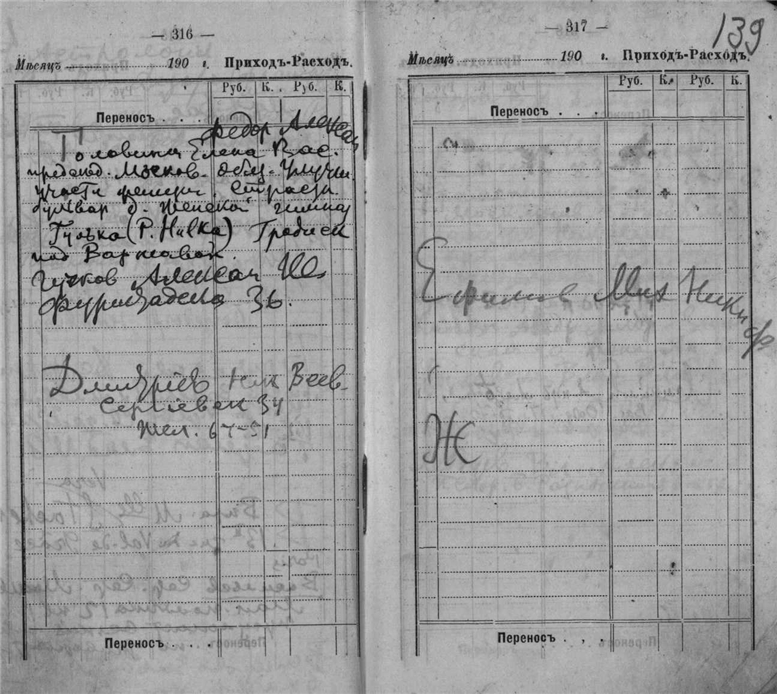 — 316 —
Мѣсяцъ 190 г. Приходъ-Расходъ.
Руб. К. Руб. К.
Переносъ . . .
Федор Алексан
Головины Елена Вас.
председ. Москов. общ. улучш.
участи женщин. Страстн.
бульвар д. Женской гимназ
Гулька (Р. Нивка) Гродиск
под Варшавой.
Гучков Александ Ив.
Фурштадска 36.
Дмитріев Ник Всев.
Сергіевск 34
тел. 67-51
Переносъ . . .
— 317 —
139
Мѣсяцъ 190 г. Приходъ-Расходъ.
Руб. К. Руб. К.
Переносъ . . .
Ефимов Мих Никиф
Ж
Переносъ . . .